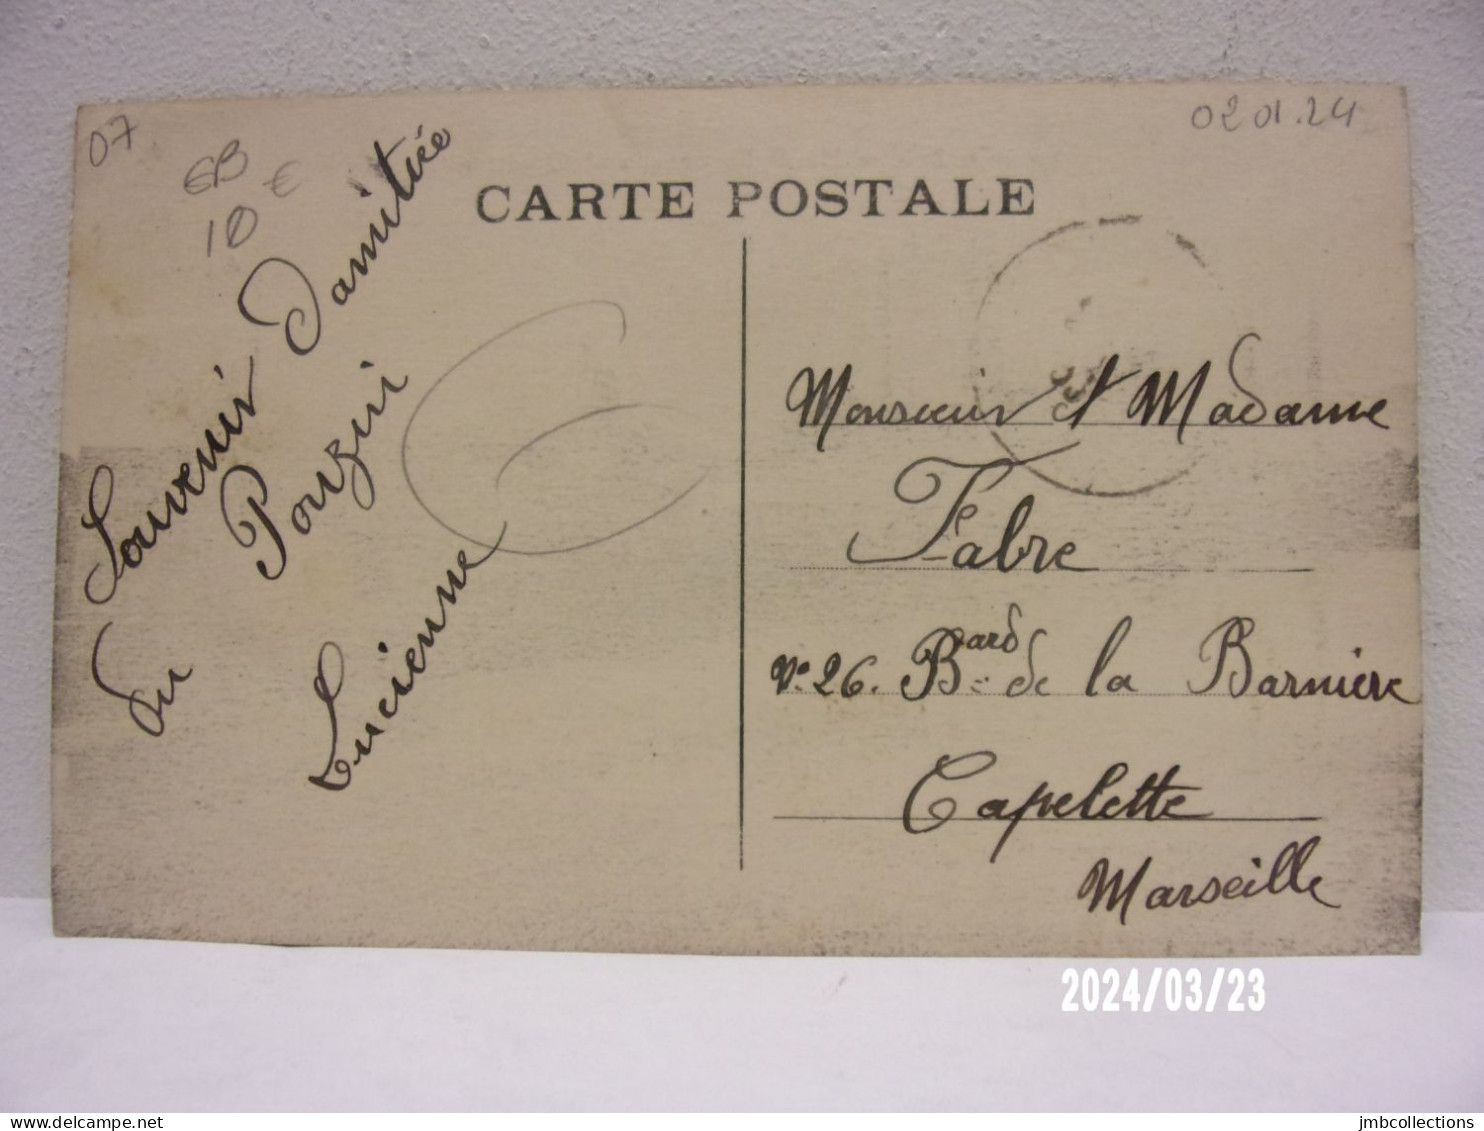 07
EB
10 €
02 01.24
CARTE POSTALE
Souvenir D'amitiée
du Pouzin
Lucienne
Monsieur et Madame
Fabre
N° 26. Bard de la Barnière
Capelette
Marseille
2024/03/23
jmbcollections